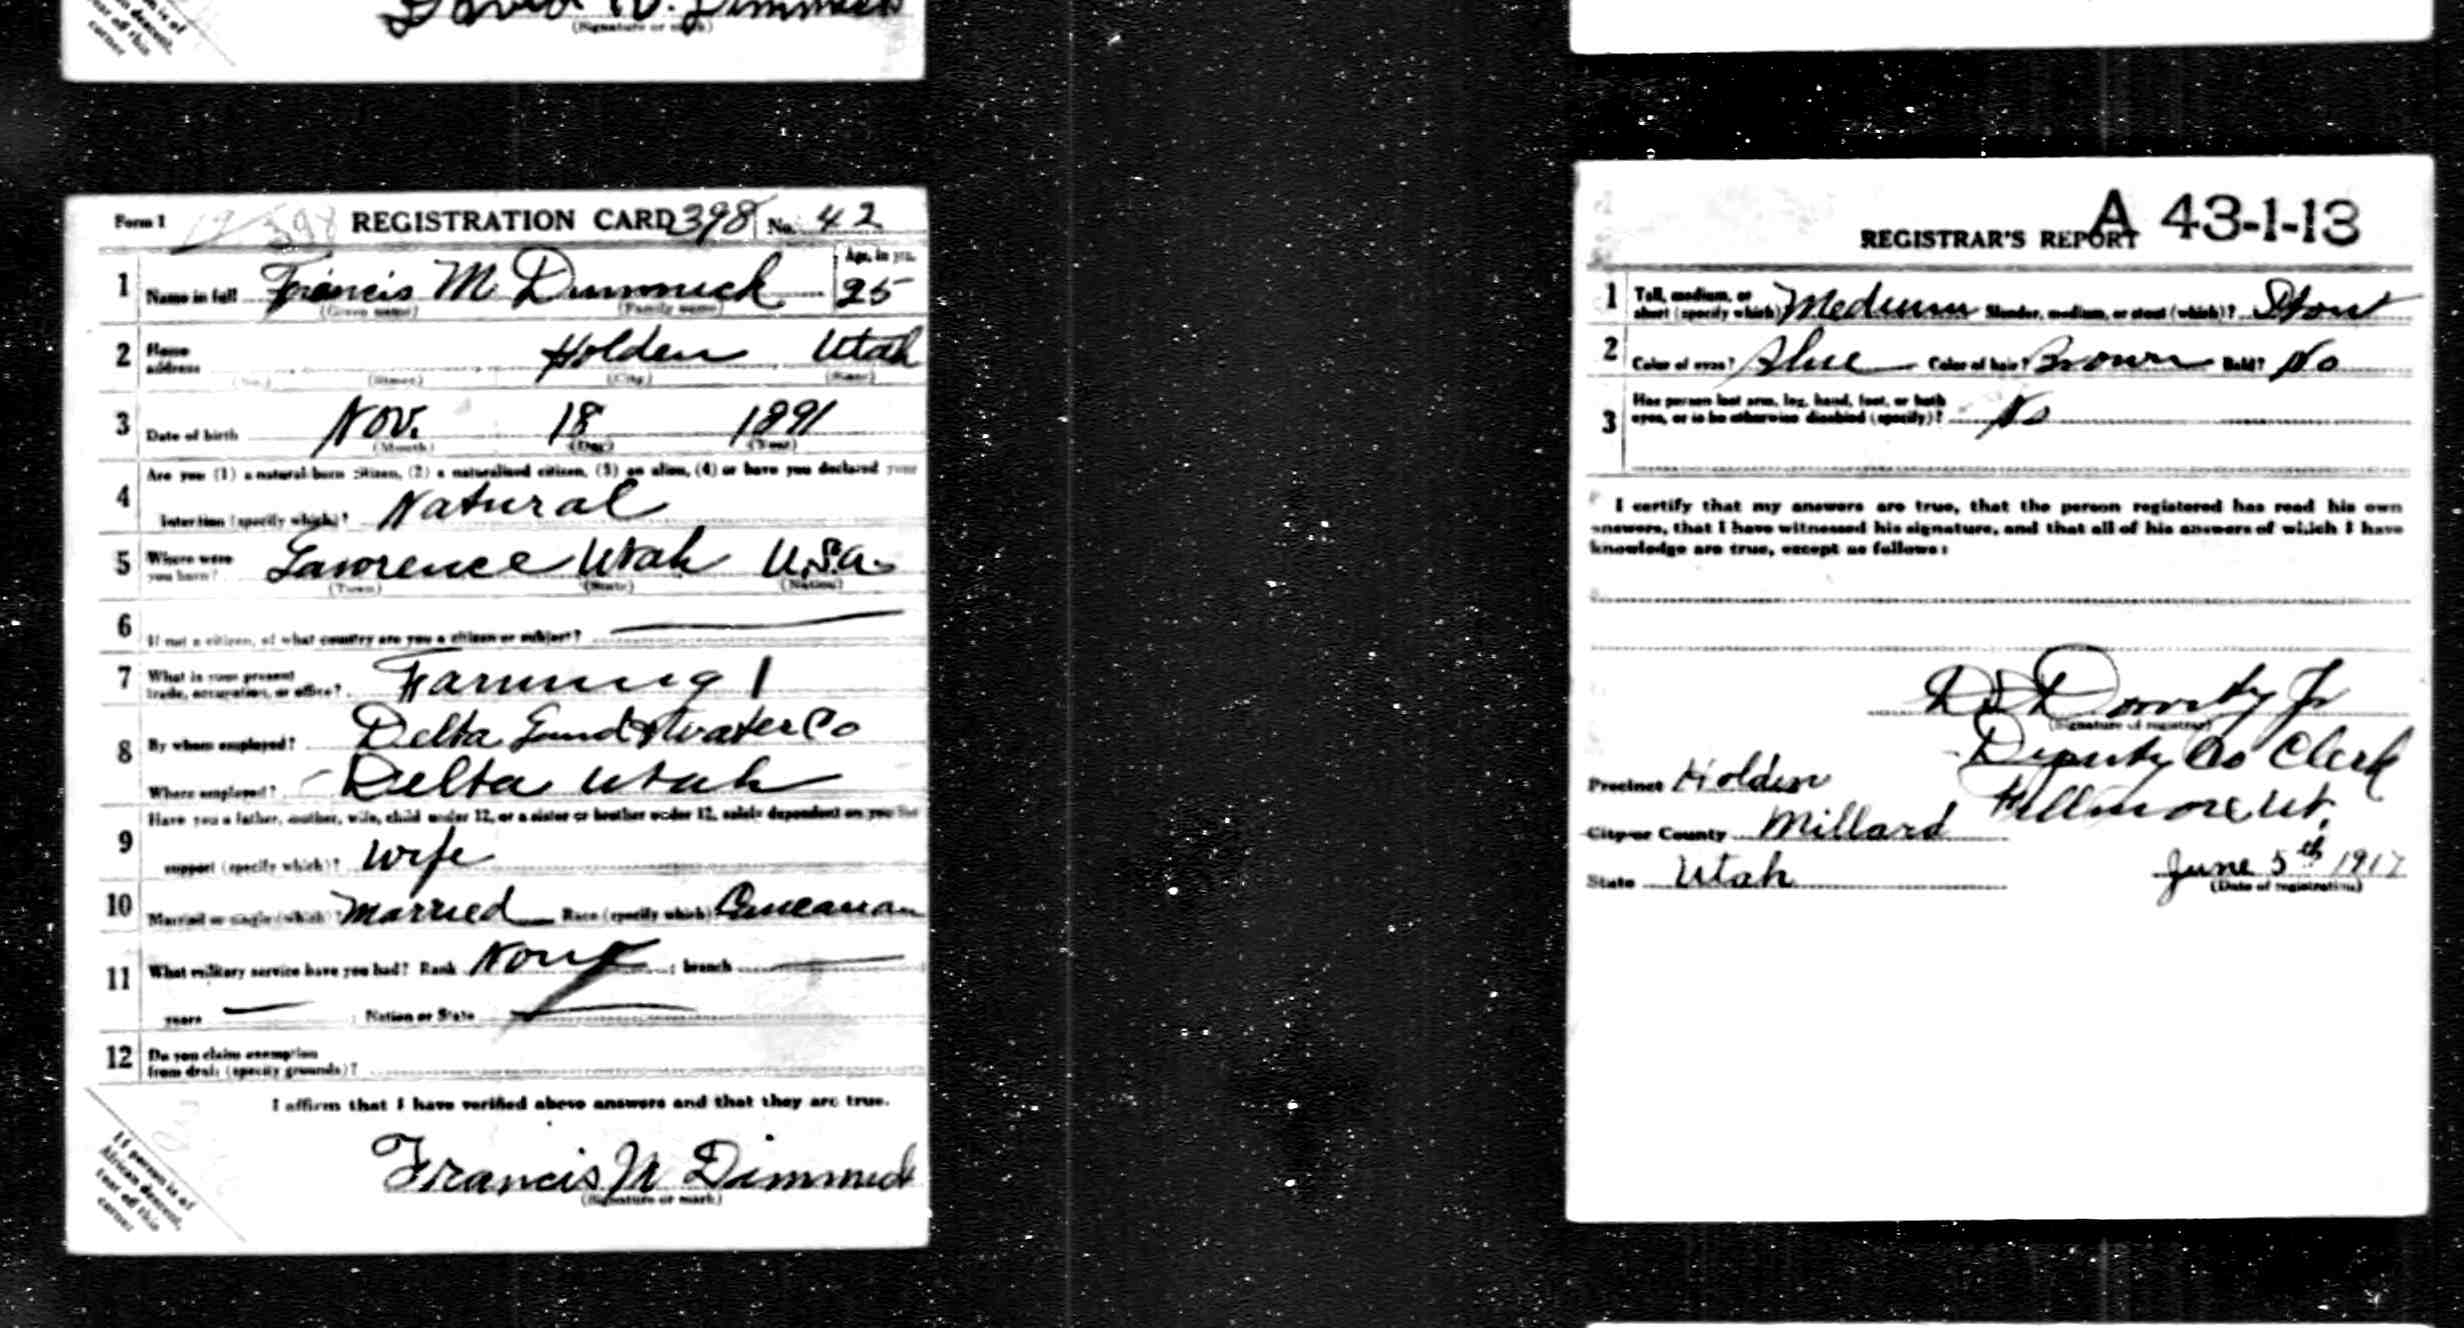 (Signature or mark)
Form 1 REGISTRATION CARD 398 No. 42
1 Name in full Francis M Dimmick Age, in yrs. 25
(Given name) (Family name)
2 Home address Holden Utah
(No.) (Street) (City) (State)
3 Date of birth Nov. 18 1891
(Month) (Day) (Year)
Are you (1) a natural-born citizen, (2) a naturalized citizen, (3) an alien, (4) or have you declared your
4 intention (specify which)? Natural
5 Where were you born? Lawrence Utah U.S.A.
(Town) (State) (Nation)
6 If not a citizen, of what country are you a citizen or subject? —
7 What is your present trade, occupation, or office? Farming 1
8 By whom employed? Delta Land & Water Co
Where employed? Delta Utah
Have you a father, mother, wife, child under 12, or a sister or brother under 12, solely dependent on you for
9 support (specify which)? Wife
10 Married or single (which)? Married Race (specify which)? Caucasian
11 What military service have you had? Rank None ; branch —
years — ; Nation or State —
12 Do you claim exemption
from draft (specify grounds)?
I affirm that I have verified above answers and that they are true.
Francis M Dimmick
(Signature or mark)
If person is of
African descent,
tear off this
corner
A 43-1-13
REGISTRAR'S REPORT
1 Tall, medium, or
short (specify which)? Medium Slender, medium, or stout (which)? Stout
2 Color of eyes? Blue Color of hair? Brown Bald? No
3 Has person lost arm, leg, hand, foot, or both
eyes, or is he otherwise disabled (specify)? No
I certify that my answers are true, that the person registered has read his own
answers, that I have witnessed his signature, and that all of his answers of which I have
knowledge are true, except as follows:
Jr
(Signature of registrar)
Deputy Co Clerk
Precinct Holden
Fillmore Ut.
City or County Millard
State Utah
June 5th 1917
(Date of registration)